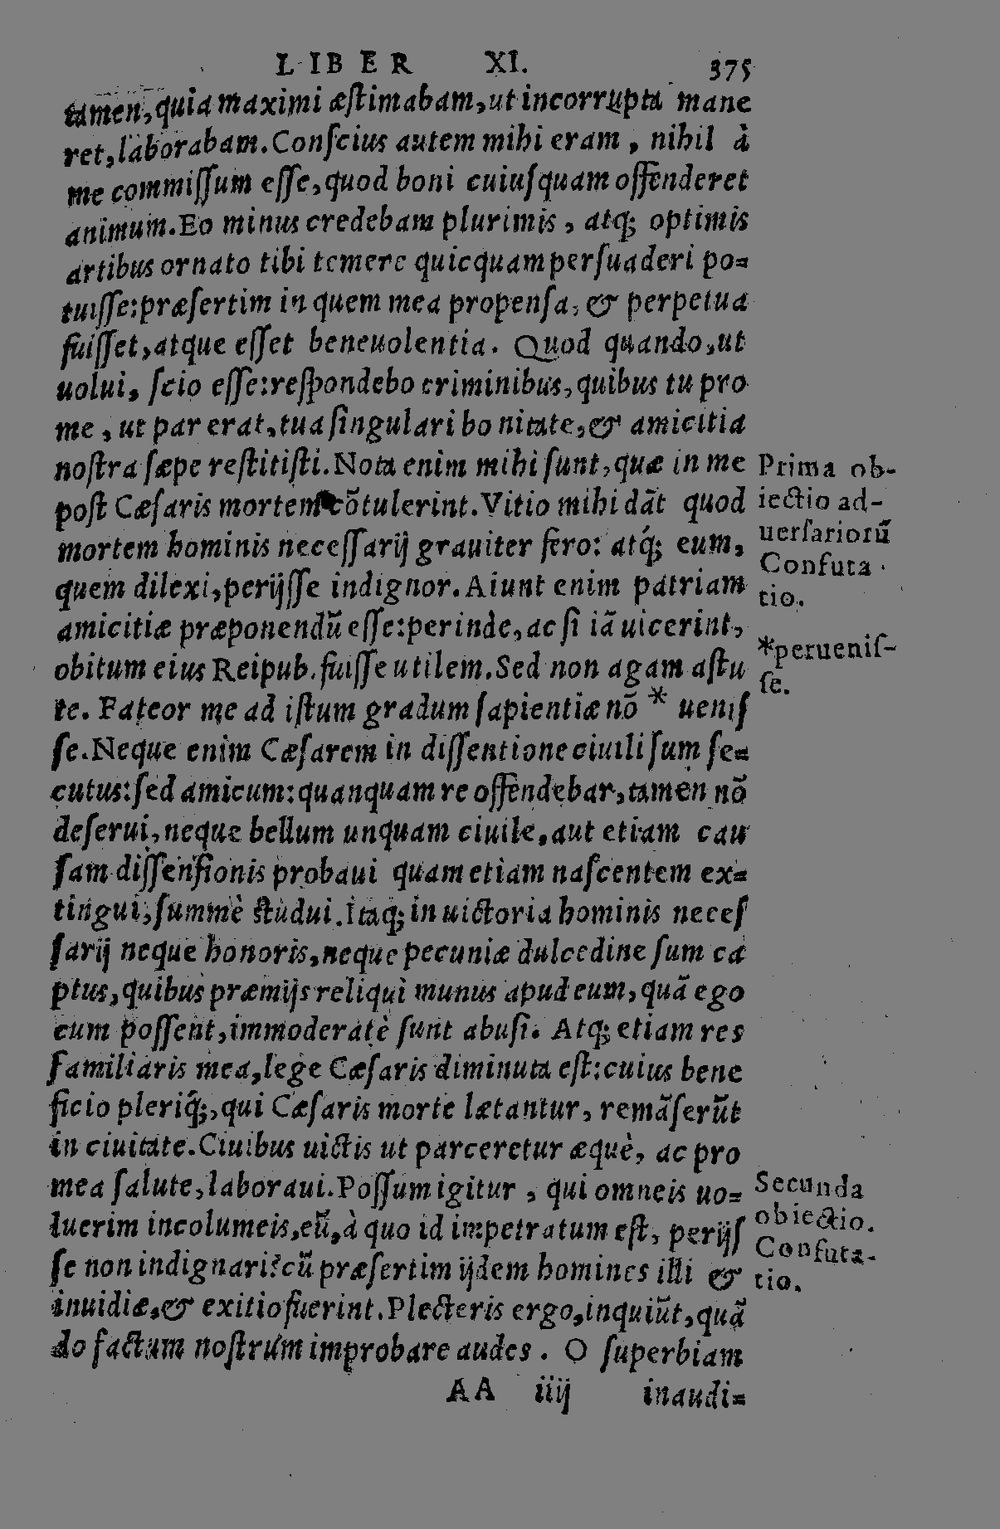 LIBER XI. 375
tamen, quia maximi æstimabam, ut incorrupta mane
ret, laborabam. Conſcius autem mihi eram, nihil à
me commiſſum eſſe, quod boni cuiuſquam offenderet
animum. Eo minus credebam plurimis, atq; optimis
artibus ornato tibi temere quicquam perſuaderi po=
tuiſſe: præſertim in quem mea propenſa, & perpetua
fuiſſet, atque eſſet beneuolentia. Quod quando, ut
uolui, ſcio eſſe: reſpondebo criminibus, quibus tu pro
me, ut par erat, tua ſingulari bonitate, & amicitia
noſtra ſæpe reſtitiſti. Nota enim mihi ſunt, quæ in me
poſt Cæſaris mortem cōtulerint. Vitio mihi dāt quod
mortem hominis neceſſarij grauiter fero: atq́; eum,
quem dilexi, perijſſe indignor. Aiunt enim patriam
amicitiæ præponendū eſſe: perinde, ac ſi iā uicerint,
obitum eius Reipub. fuiſſe utilem. Sed non agam aſtu
te. Fateor me ad iſtum gradum ſapientiæ nō * ueniſ
ſe. Neque enim Cæſarem in diſſentione ciuili ſum ſe=
cutus: ſed amicum: quanquam re offendebar, tamen nō
deſerui, neque bellum unquam ciuile, aut etiam cau
ſam diſſenſionis probaui quam etiam naſcentem ex=
tingui, ſummè ſtudui. Itaq; in uictoria hominis neceſ
ſarij neque honoris, neque pecuniæ dulcedine ſum ca
ptus, quibus præmijs reliqui minus apud eum, quā ego
cum poſſent, immoderatè ſunt abuſi. Atq; etiam res
familiaris mea, lege Cæſaris diminuta eſt: cuius bene
ficio pleriq́;, qui Cæſaris morte lætantur, remāſerūt
in ciuitate. Ciuibus uictis ut parceretur æquè, ac pro
mea ſalute, laboraui. Poſſum igitur, qui omneis uo=
luerim incolumeis, eū, à quo id impetratum eſt, perijſ
ſe non indignari? cū præſertim ijdem homines illi &
inuidiæ, & exitio fuerint. Plecteris ergo, inquiūt, quā
do factum noſtrum improbare audes. O ſuperbiam
AA iiij inaudi=
Prima ob-
iectio ad-
uerſariorū
Confuta
tio.
*perueniſ-
ſe.
Secunda
obiectio.
Confuta-
tio.